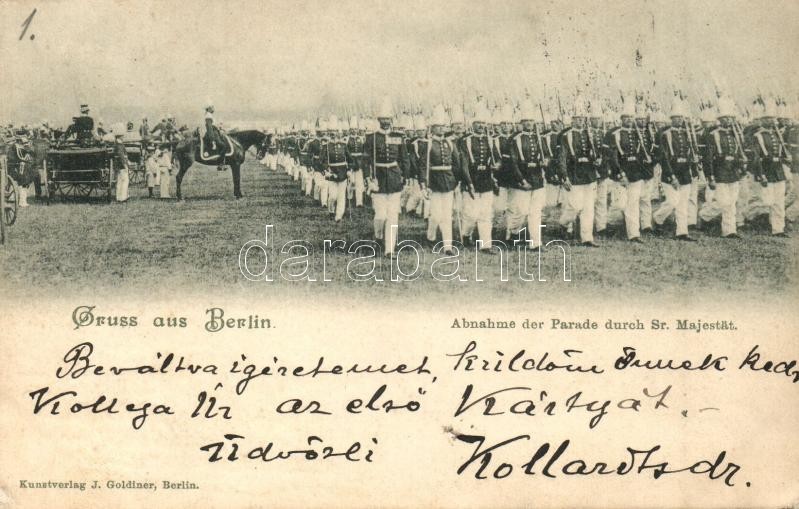 1.
darabanth
Gruss aus Berlin.
Abnahme der Parade durch Sr. Majestät.
Beváltva igéretemet, küldöm Önnek ked.
Kollega Úr az első Kártyát. —
Üdvözli Kollardtsdr.
Kunstverlag J. Goldiner, Berlin.